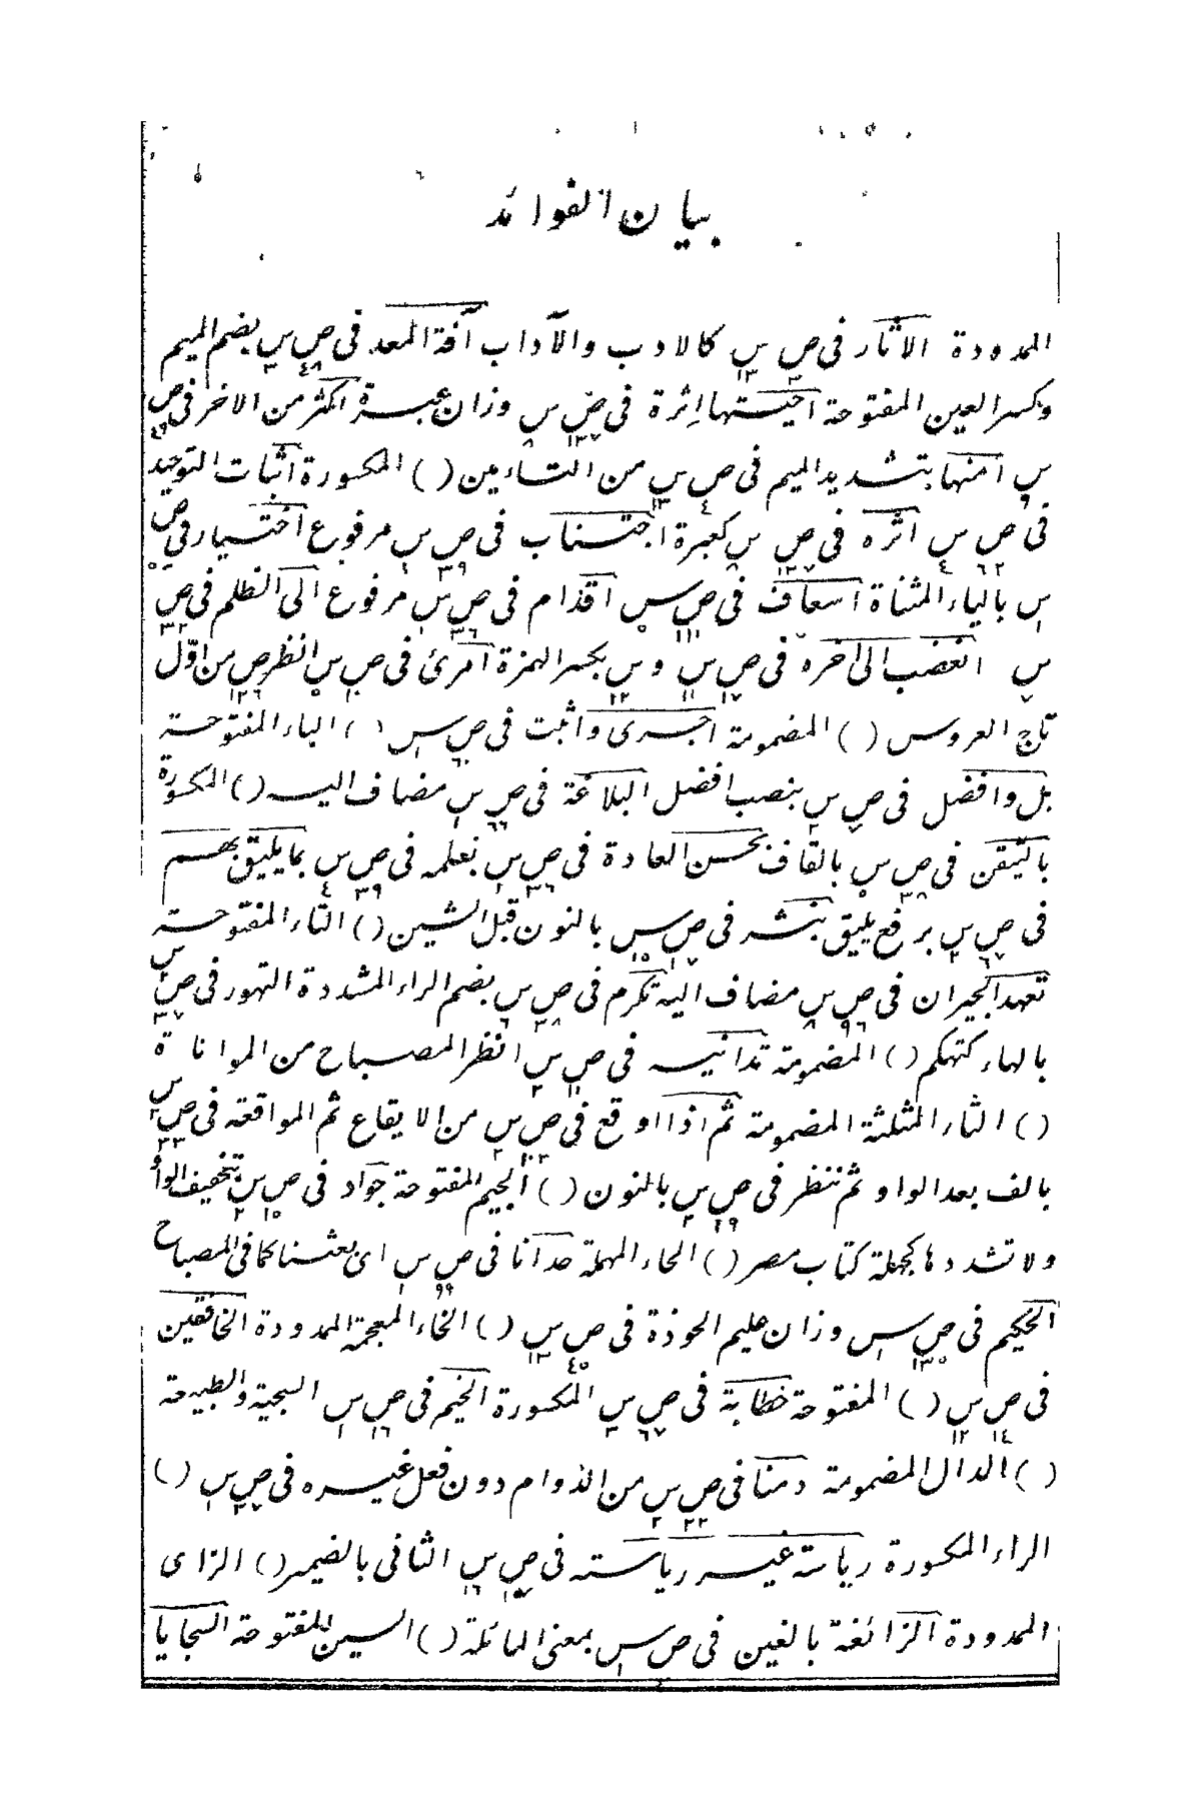 بيان الفوائد
الممدودة الآثار فى ص س كالادب والآداب آفة المعد فى ص س بضم الميم
وكسر العين المفتوحة اثرة فى ص س وزان عبرة اكثر من الاخر فى ص
س امنها بتشديد الميم فى ص س من التأمين ( ) المكسورة اثبات التوحيد
فى ص س اثره فى ص س كعبرة اجتناب فى ص س مرفوع اختيار فى ص
س بالياء المثناة اسعاف فى ص س اقدام فى ص س مرفوع الى الظلم فى ص
س الغضب الى اخره فى ص س و س بكسر الهمزة امرئ فى ص س انظر ص من اول
تاج العروس ( ) المضمومة اجرى واثبت فى ص س ( ) الباء المفتوحة
بل وافضل فى ص س بنصب افضل البلاغة فى ص س مضاف اليه ( ) المكسورة
بالتيقن فى ص س بالقاف بحسن العادة فى ص س نعلمه فى ص س بما يليق بهم
فى ص س برفع يليق بنشر فى ص س بالنون قبل الشين ( ) التاء المفتوحة
تعهد الجيران فى ص س مضاف اليه تكرم فى ص س بضم الراء المشددة التهور فى ص س
بالهاء كتهكم ( ) المضمومة تدانيه فى ص س انظر المصباح من المواناة
( ) الثاء المثلثة المضمومة ثم اذا اوقع فى ص س من الايقاع ثم المواقعه فى ص س
بالف بعد الواو ثم ننظر فى ص س بالنون ( ) الجيم المفتوحة جواد فى ص س بتخفيف الواو
ولا تشددها كجهلة كتاب مصر ( ) الحاء المهملة حدانا فى ص س اى بعثنا كما فى المصباح
الحكيم فى ص س وزان عليم الحوذة فى ص س ( ) الخاء المعجمة الممدودة الخافقين
فى ص س ( ) المفتوحة خطابة فى ص س المكسورة الخيم فى ص س السجية والطبيعة
( ) الدال المضمومة دمنا فى ص س من الدوام دون فعل غيره فى ص س ( )
الراء المكسورة رياسة غير رياسته فى ص س الثانى بالضمير ( ) الزاى
الممدودة الزائغة بالغين فى ص س بمعنى المائلة ( ) السين المفتوحة السجايا